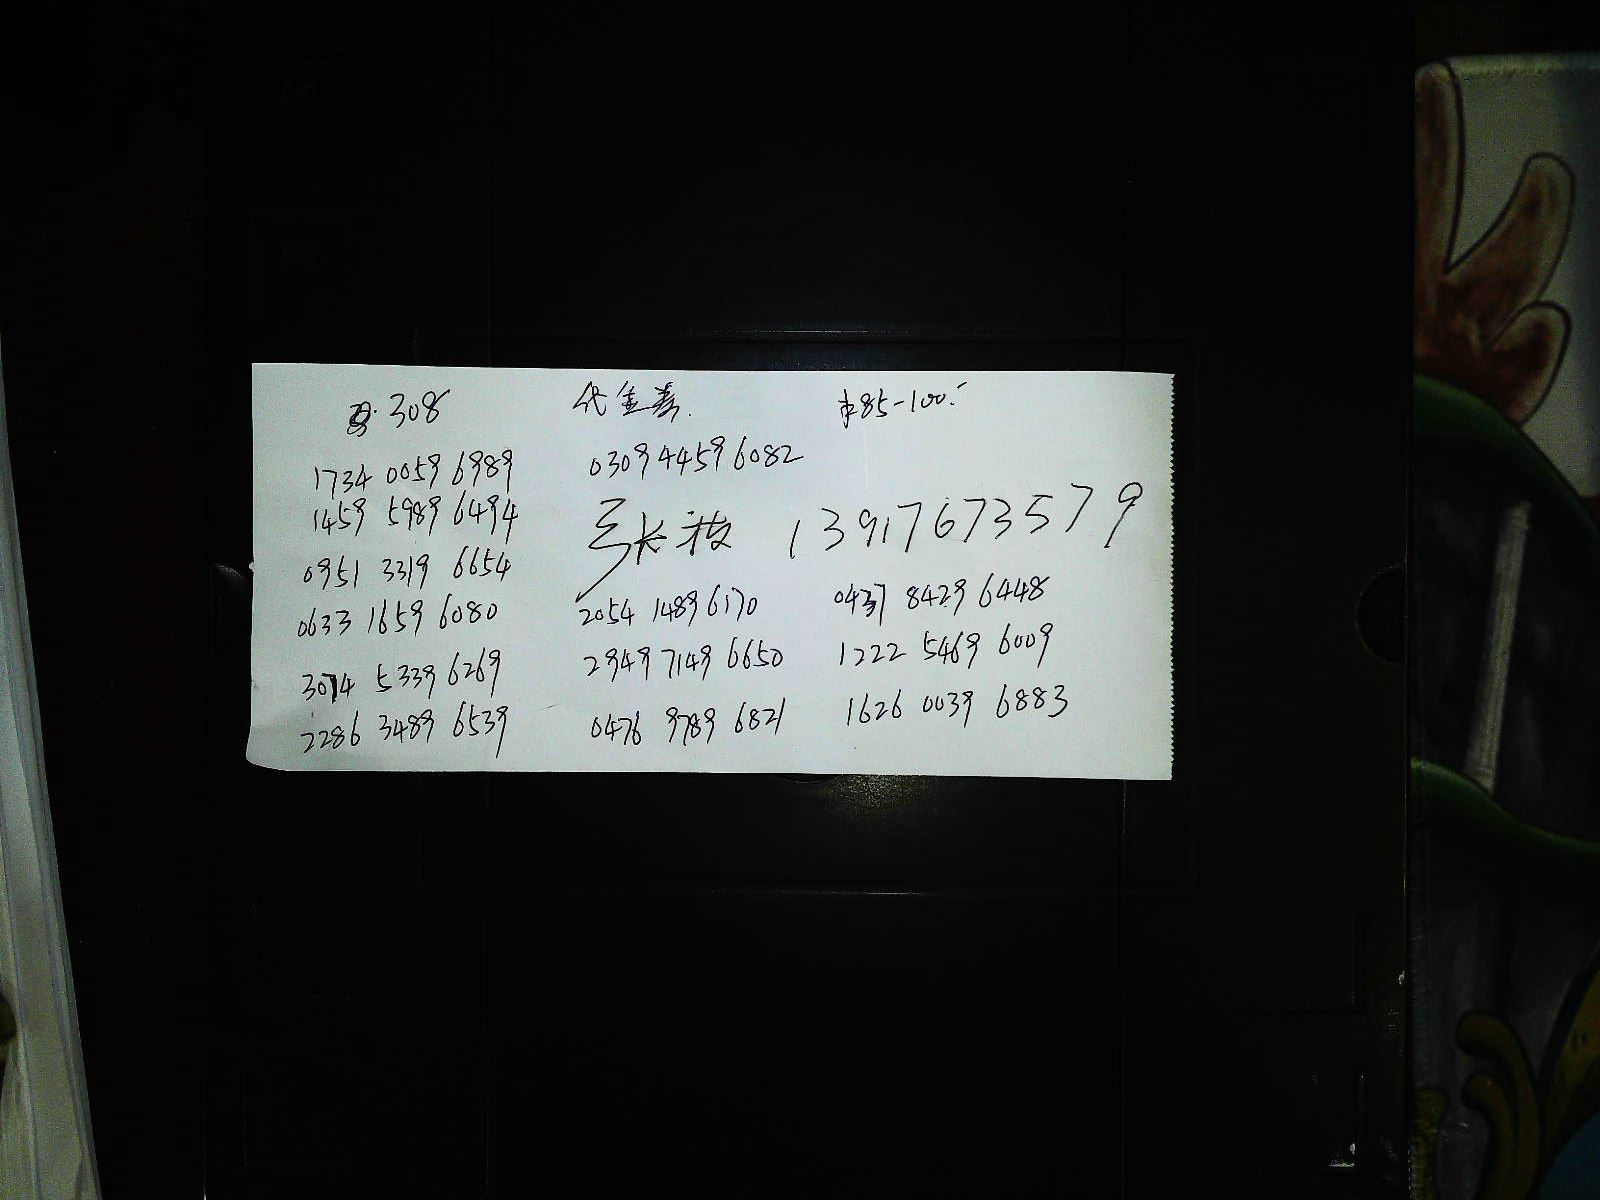 308 代金券 85-100
1734 0059 6989 0309 4459 6082
1459 5989 6494
张 13917673579
0951 3319 6654
0633 1659 6080 2054 1489 6170 0437 8429 6448
3074 5339 6269 2949 7149 6650 1222 5469 6009
2286 3489 6539 0476 9789 6821 1626 0039 6883